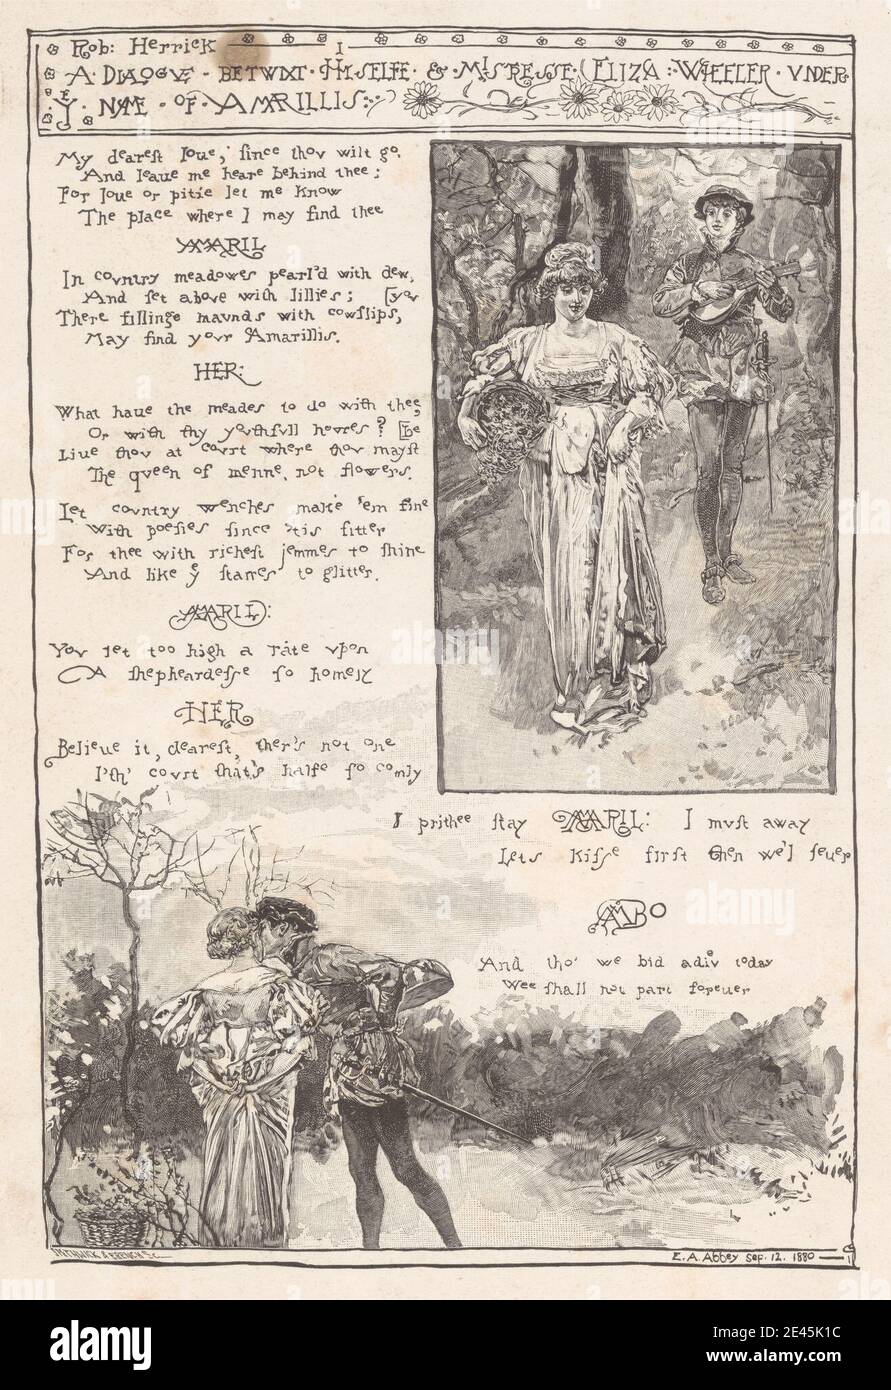 Rob: Herrick I
A DIALOGVE · BETWIXT · HIMSELFE · & MISTRESSE (ELIZA : WHEELER · VNDER
Yᴱ · NAME · OF · AMARILLIS:
My dearest loue, since thov wilt go,
And leaue me heare behind thee;
For loue or pitie let me know
The place where I may find thee
AMARIL
In covntry meadowes pearl'd with dew,
And set above with lillies; [yov
There fillinge mavnds with cowslips,
May find yovr Amarillis.
HER:
What haue the meades to do with thee,
Or with thy yovthfvll howres? [be
Liue thov at covrt where thov mayst
The qveen of menne, not flowers.
Let covntry wenches make 'em fine
With poesies since 'tis fitter
For thee with richest jemmes to shine
And like yᵉ starres to glitter.
AMARIL:
Yov set too high a rate vpon
A shepheardesse so homely
HER
Believe it, dearest, ther's not one
I'th' covrt that's halfe so comly
I prithee stay AMARIL: I mvst away
Lets kisse first then we'l seuer
AMBO
And tho' we bid adiev today
Wee shall not part foreuer
E. A. Abbey Sep. 12. 1880
alamy
Image ID: 2E45K1C
www.alamy.com